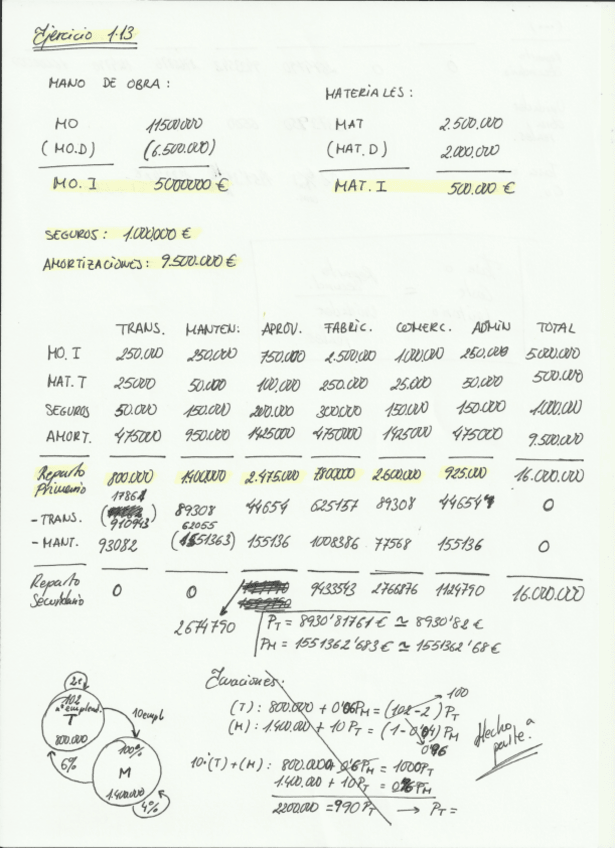 Ejercicio 1.13
MANO DE OBRA:
MO 11500000
(MO.D) (6.500.000)
MO. I 5000000 €
MATERIALES:
MAT 2.500.000
(MAT.D) 2.000.000
MAT. I 500.000 €
SEGUROS: 1.000.000 €
AMORTIZACIONES: 9.500.000 €
TRANS. MANTEN: APROV. FABRIC. COMERC. ADMIN TOTAL
MO. I 250.000 250.000 750.000 2.500.000 1000.000 250.000 5.000.000
MAT. I 25000 50.000 100.000 250.000 25.000 50.000 500.000
SEGUROS 50.000 150.000 200.000 300.000 150.000 150.000 1000.000
AMORT. 475000 950.000 1425000 4750000 1425000 475000 9.500.000
Reparto Primario 800.000 1400000 2.475.000 7800000 2.600.000 925.000 16.000.000
17861
- TRANS. (910943 89308 44654 625157 89308 44654 0
62055
- MANT. 93082 (1551363) 155136 1008386 77568 155136 0
Reparto Secundario 0 0 9433543 2766876 1124790 16.000.000
2674790
PT = 8930'81761 € ≃ 8930'82 €
PM = 1551362'683 € ≃ 1551362'68 €
2e
102
nº emplead.
T
800.000
10 empl
6%
100%
M
1.400.000
4%
Ecuaciones:
100
(T): 800.000 + 0'06PM = (102-2) PT
(M): 1.400.000 + 10 PT = (1-0'04) PM
0'96
10·(T)+(M): 800.000 + 0'6PM = 1000PT
1.400.000 + 10PT = 0'96PM
2200000 = 990 PT → PT =
Hecho aparte.